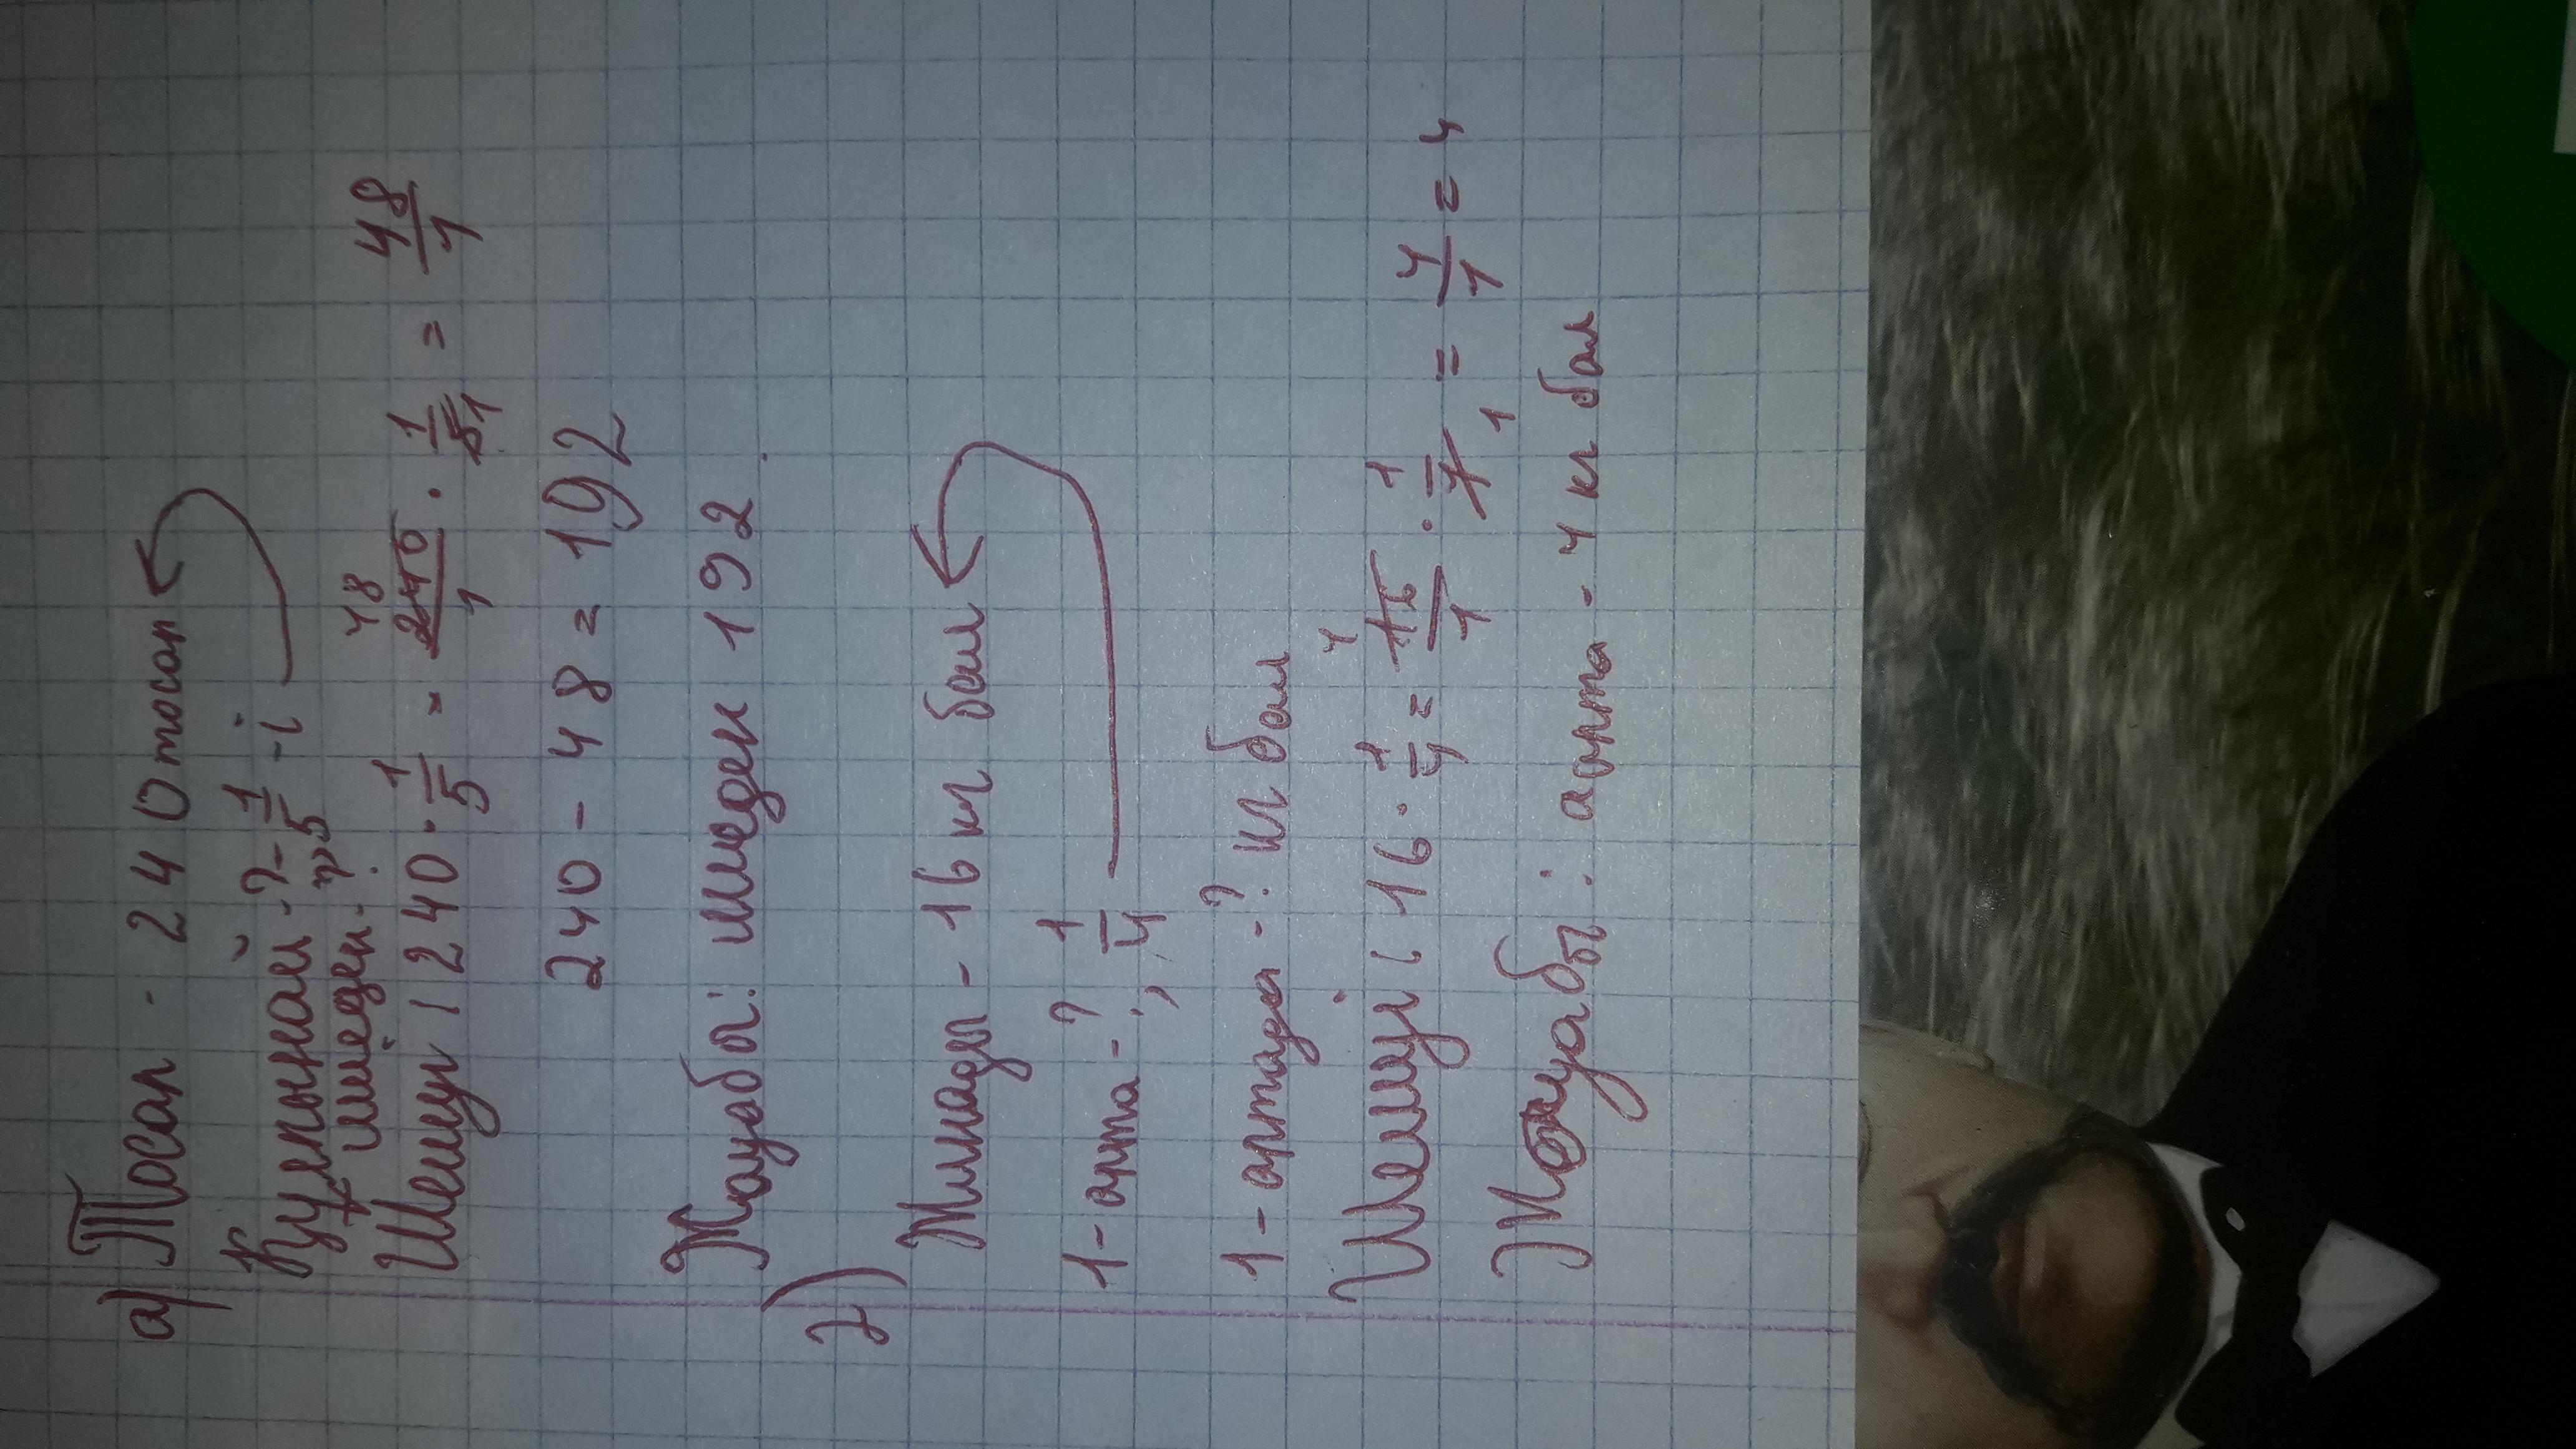 а) Тосап - 240 тосап
Құлпынай - ? - 1/5 - і
шиеден - ?
Шешуі 240 · 1/5 = 240/1 · 1/5 = 48/1
48 1
240 - 48 = 192
Жауабы: шиеден 192
2) Жинады - 16 кг бал
1 - арта - ?, 1/4
1 - артада - ? кг бал
Шешуі: 16 · 1/4 = 16/1 · 1/4 = 4/1 = 4
4 1
Жауабы: арта - 4 кг бал